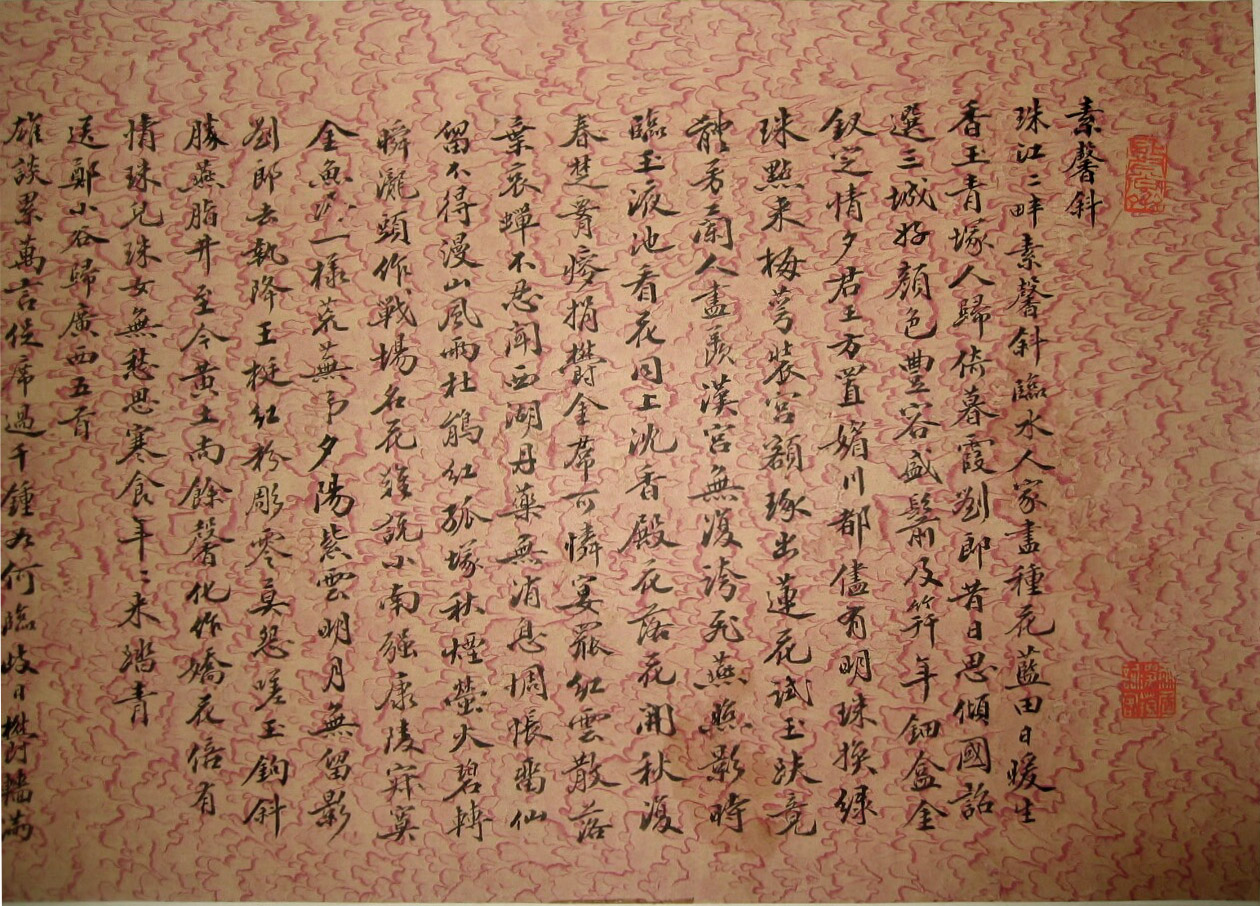 素馨斜
珠江江畔素馨斜臨水人家盡種花藍田日暖生
香玉青塚人歸倚暮霞劉郎昔日思傾國詔
選三城好顏色豐容盛鬋及笄年鈿盒金
釵定情夕君王方置媚川都儘有明珠換綠
珠點來梅萼裝宮額琢出蓮花試玉趺竟
體芳蘭人盡羨漢宮無復誇飛燕照影時
臨玉液池看花同上沈香殿花落花開秋復
春楚膏瘞捐鬱金蓆可憐宴罷紅雲散落
葉哀蟬不忍聞西湖丹藥無消息惆悵雷仙
留不得漫山風雨杜鵑紅孤塚秋煙螢火碧轉
瞬瀧頭作戰場名花難說小南強康陵寂寞
金魚一樣荒蕪弔夕陽紫雲明月無留影
劉郎去執降王梃紅粉彫零莫怨嗟玉鉤斜
勝燕脂井至今黃土尚餘馨化作嬌花倍有
情珠兒珠女無愁思寒食年年來踏青
送鄭小谷歸廣西五首
雄談累萬言從席過千鍾如何臨歧日 轖滿